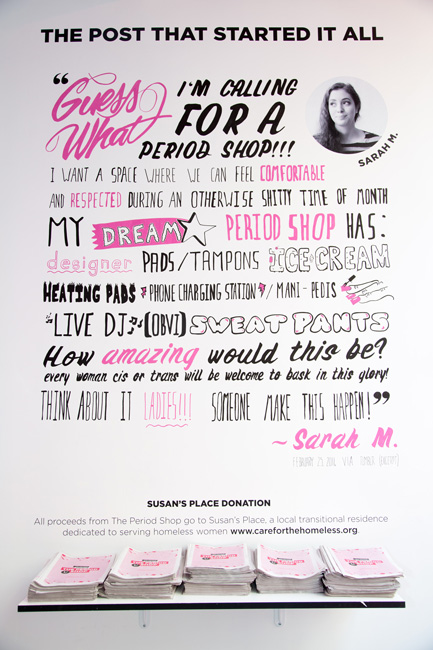 THE POST THAT STARTED IT ALL
“Guess I'M CALLING
What FOR A
PERIOD SHOP!!!
SARAH M.
I WANT A SPACE WHERE WE CAN FEEL COMFORTABLE
AND RESPECTED DURING AN OTHERWISE SHITTY TIME OF MONTH
MY DREAM PERIOD SHOP HAS:
designer PADS/TAMPONS ICE CREAM
HEATING PADS PHONE CHARGING STATION / MANI-PEDIS
LIVE DJ (OBVI) SWEAT PANTS
How amazing would this be?
every woman cis or trans will be welcome to bask in this glory!
THINK ABOUT IT LADIES!!! SOMEONE MAKE THIS HAPPEN!”
~Sarah M.
VIA
SUSAN'S PLACE DONATION
All proceeds from The Period Shop go to Susan's Place, a local transitional residence
dedicated to serving homeless women www.careforthehomeless.org